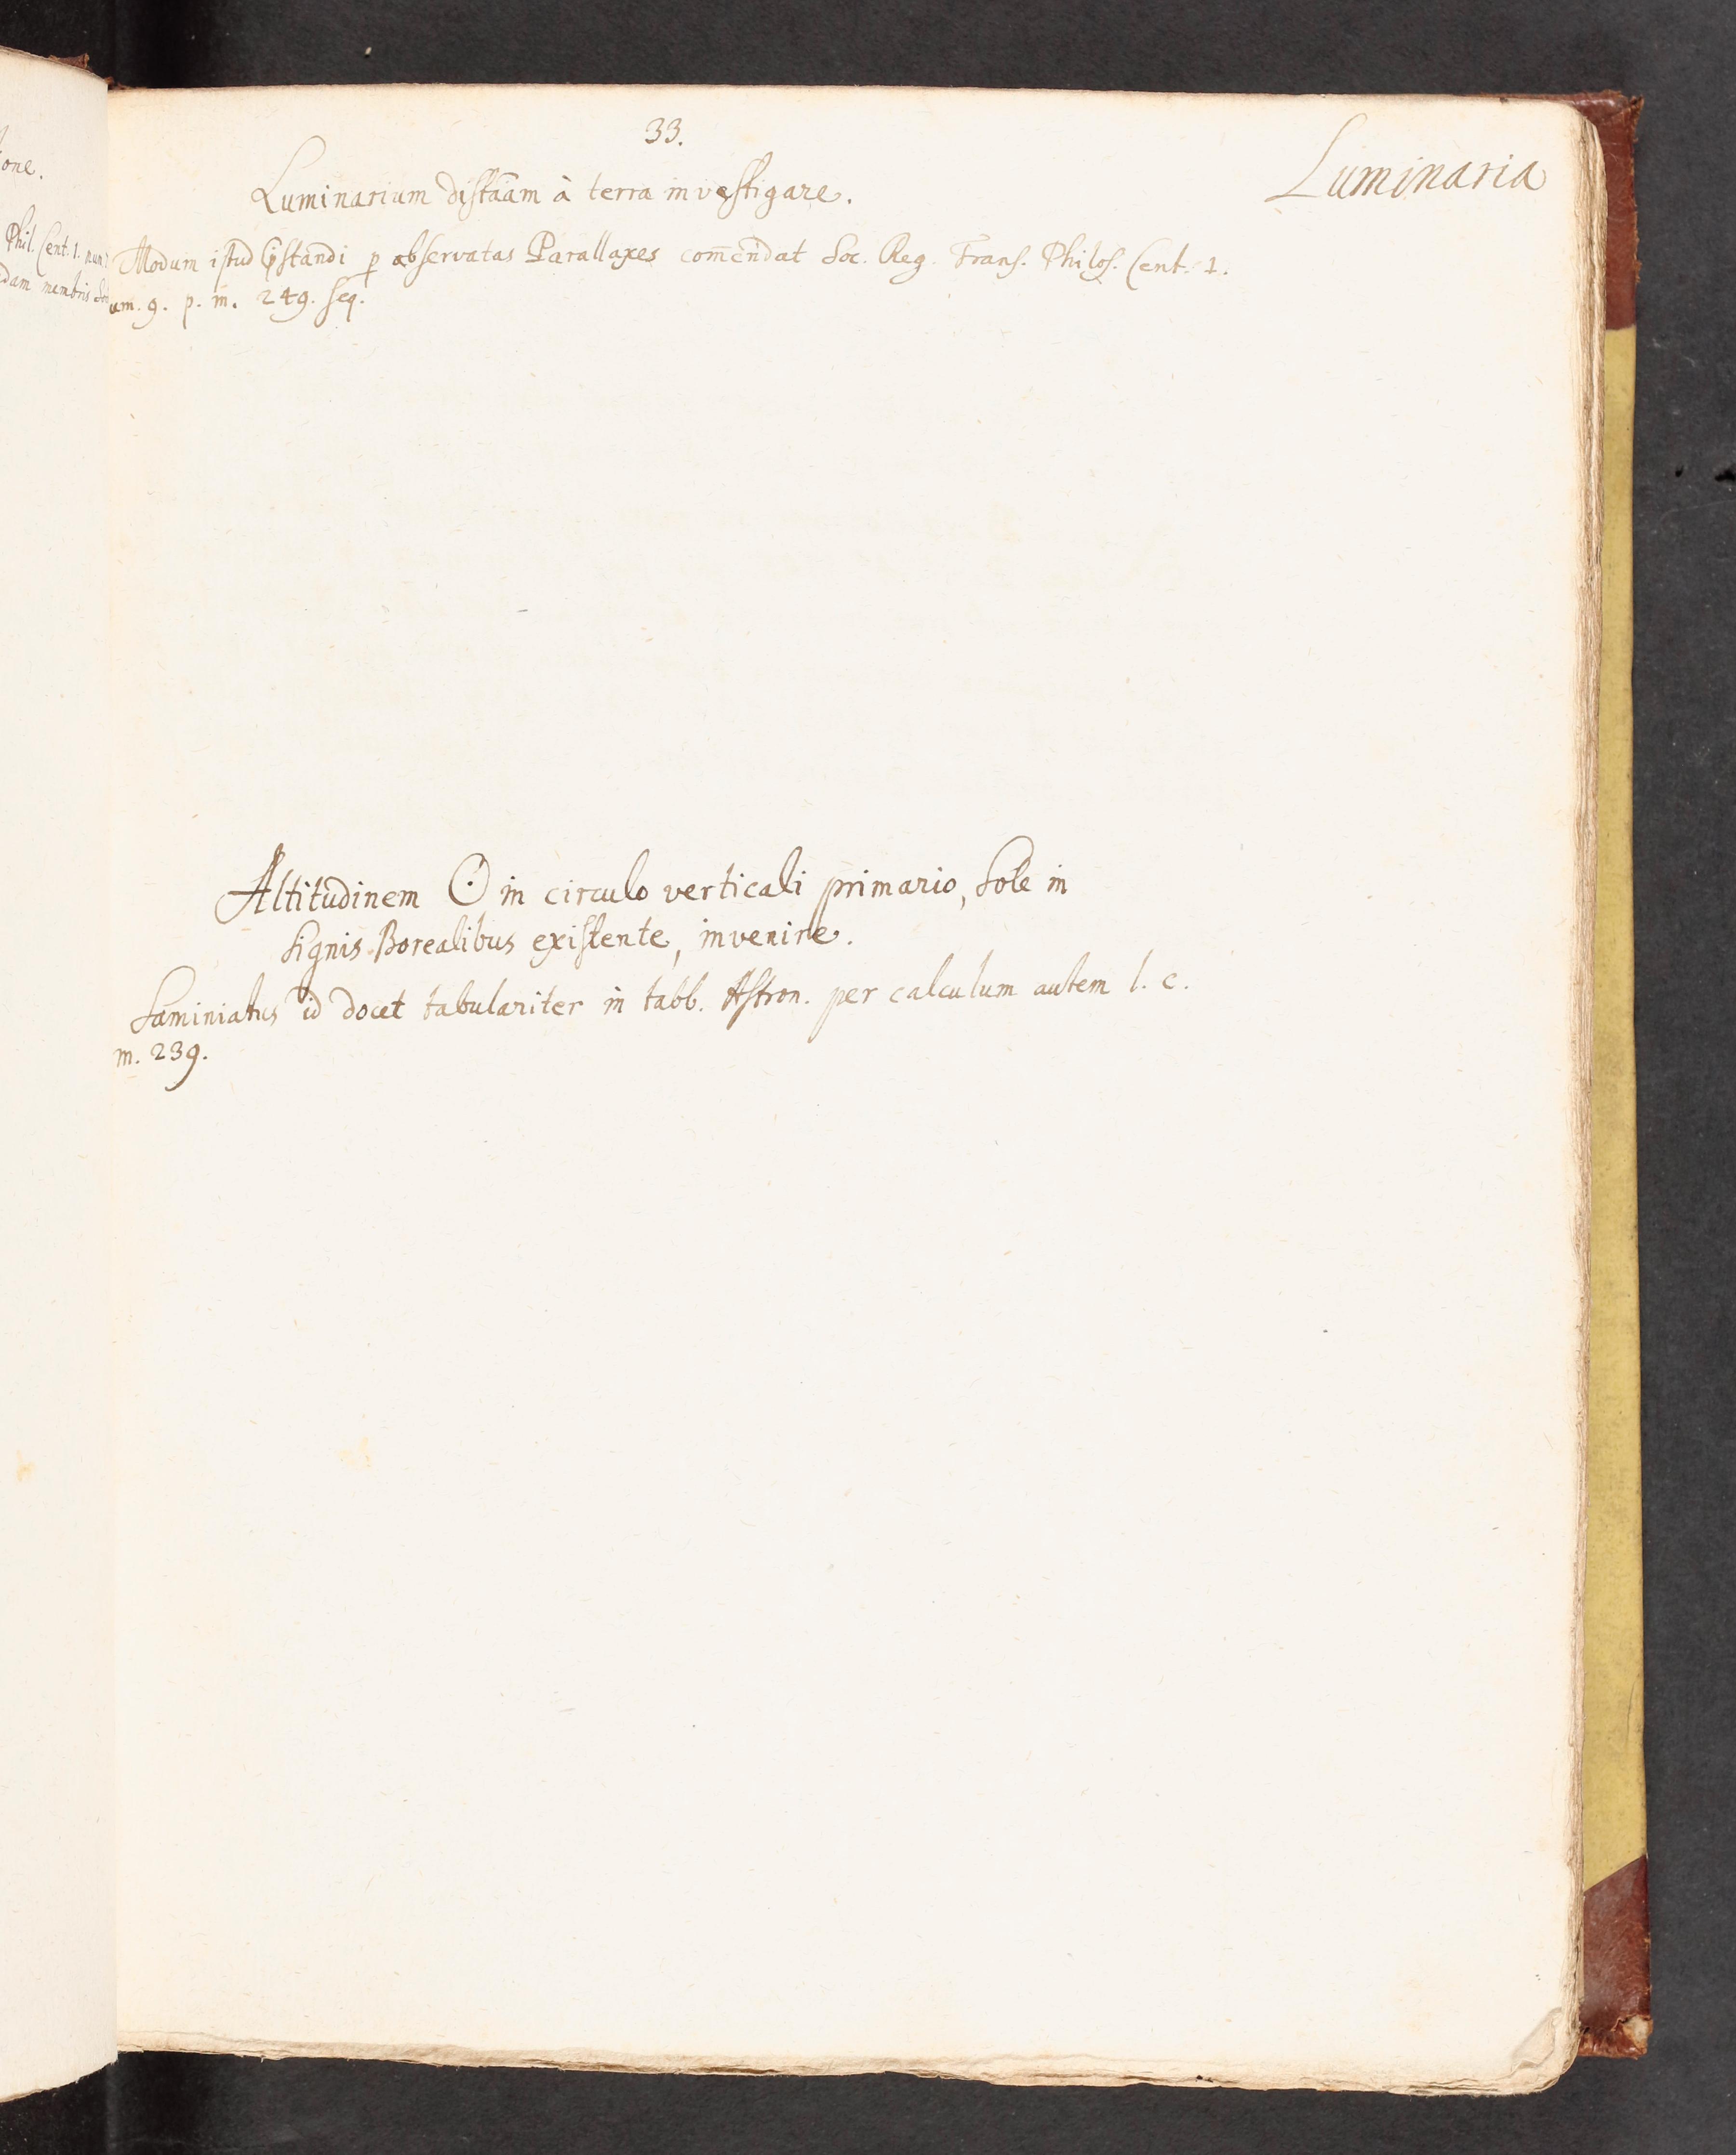 33.
Luminaria
Luminarium distãam à terra investigare.
Modum istud p̃standi p observatas Parallaxes com̃endat Soc. Reg. Trans. Philos. Cent. 1.
um. 9. p. m. 249. seq.
Altitudinem ☉ in circulo verticali primario, Sole in
signis Borealibus existente, invenire.
Saminiatus id docet tabulariter in tabb. Astron. per calculum autem l. c.
m. 239.
one.
Phil. Cent. 1. num
dam membris